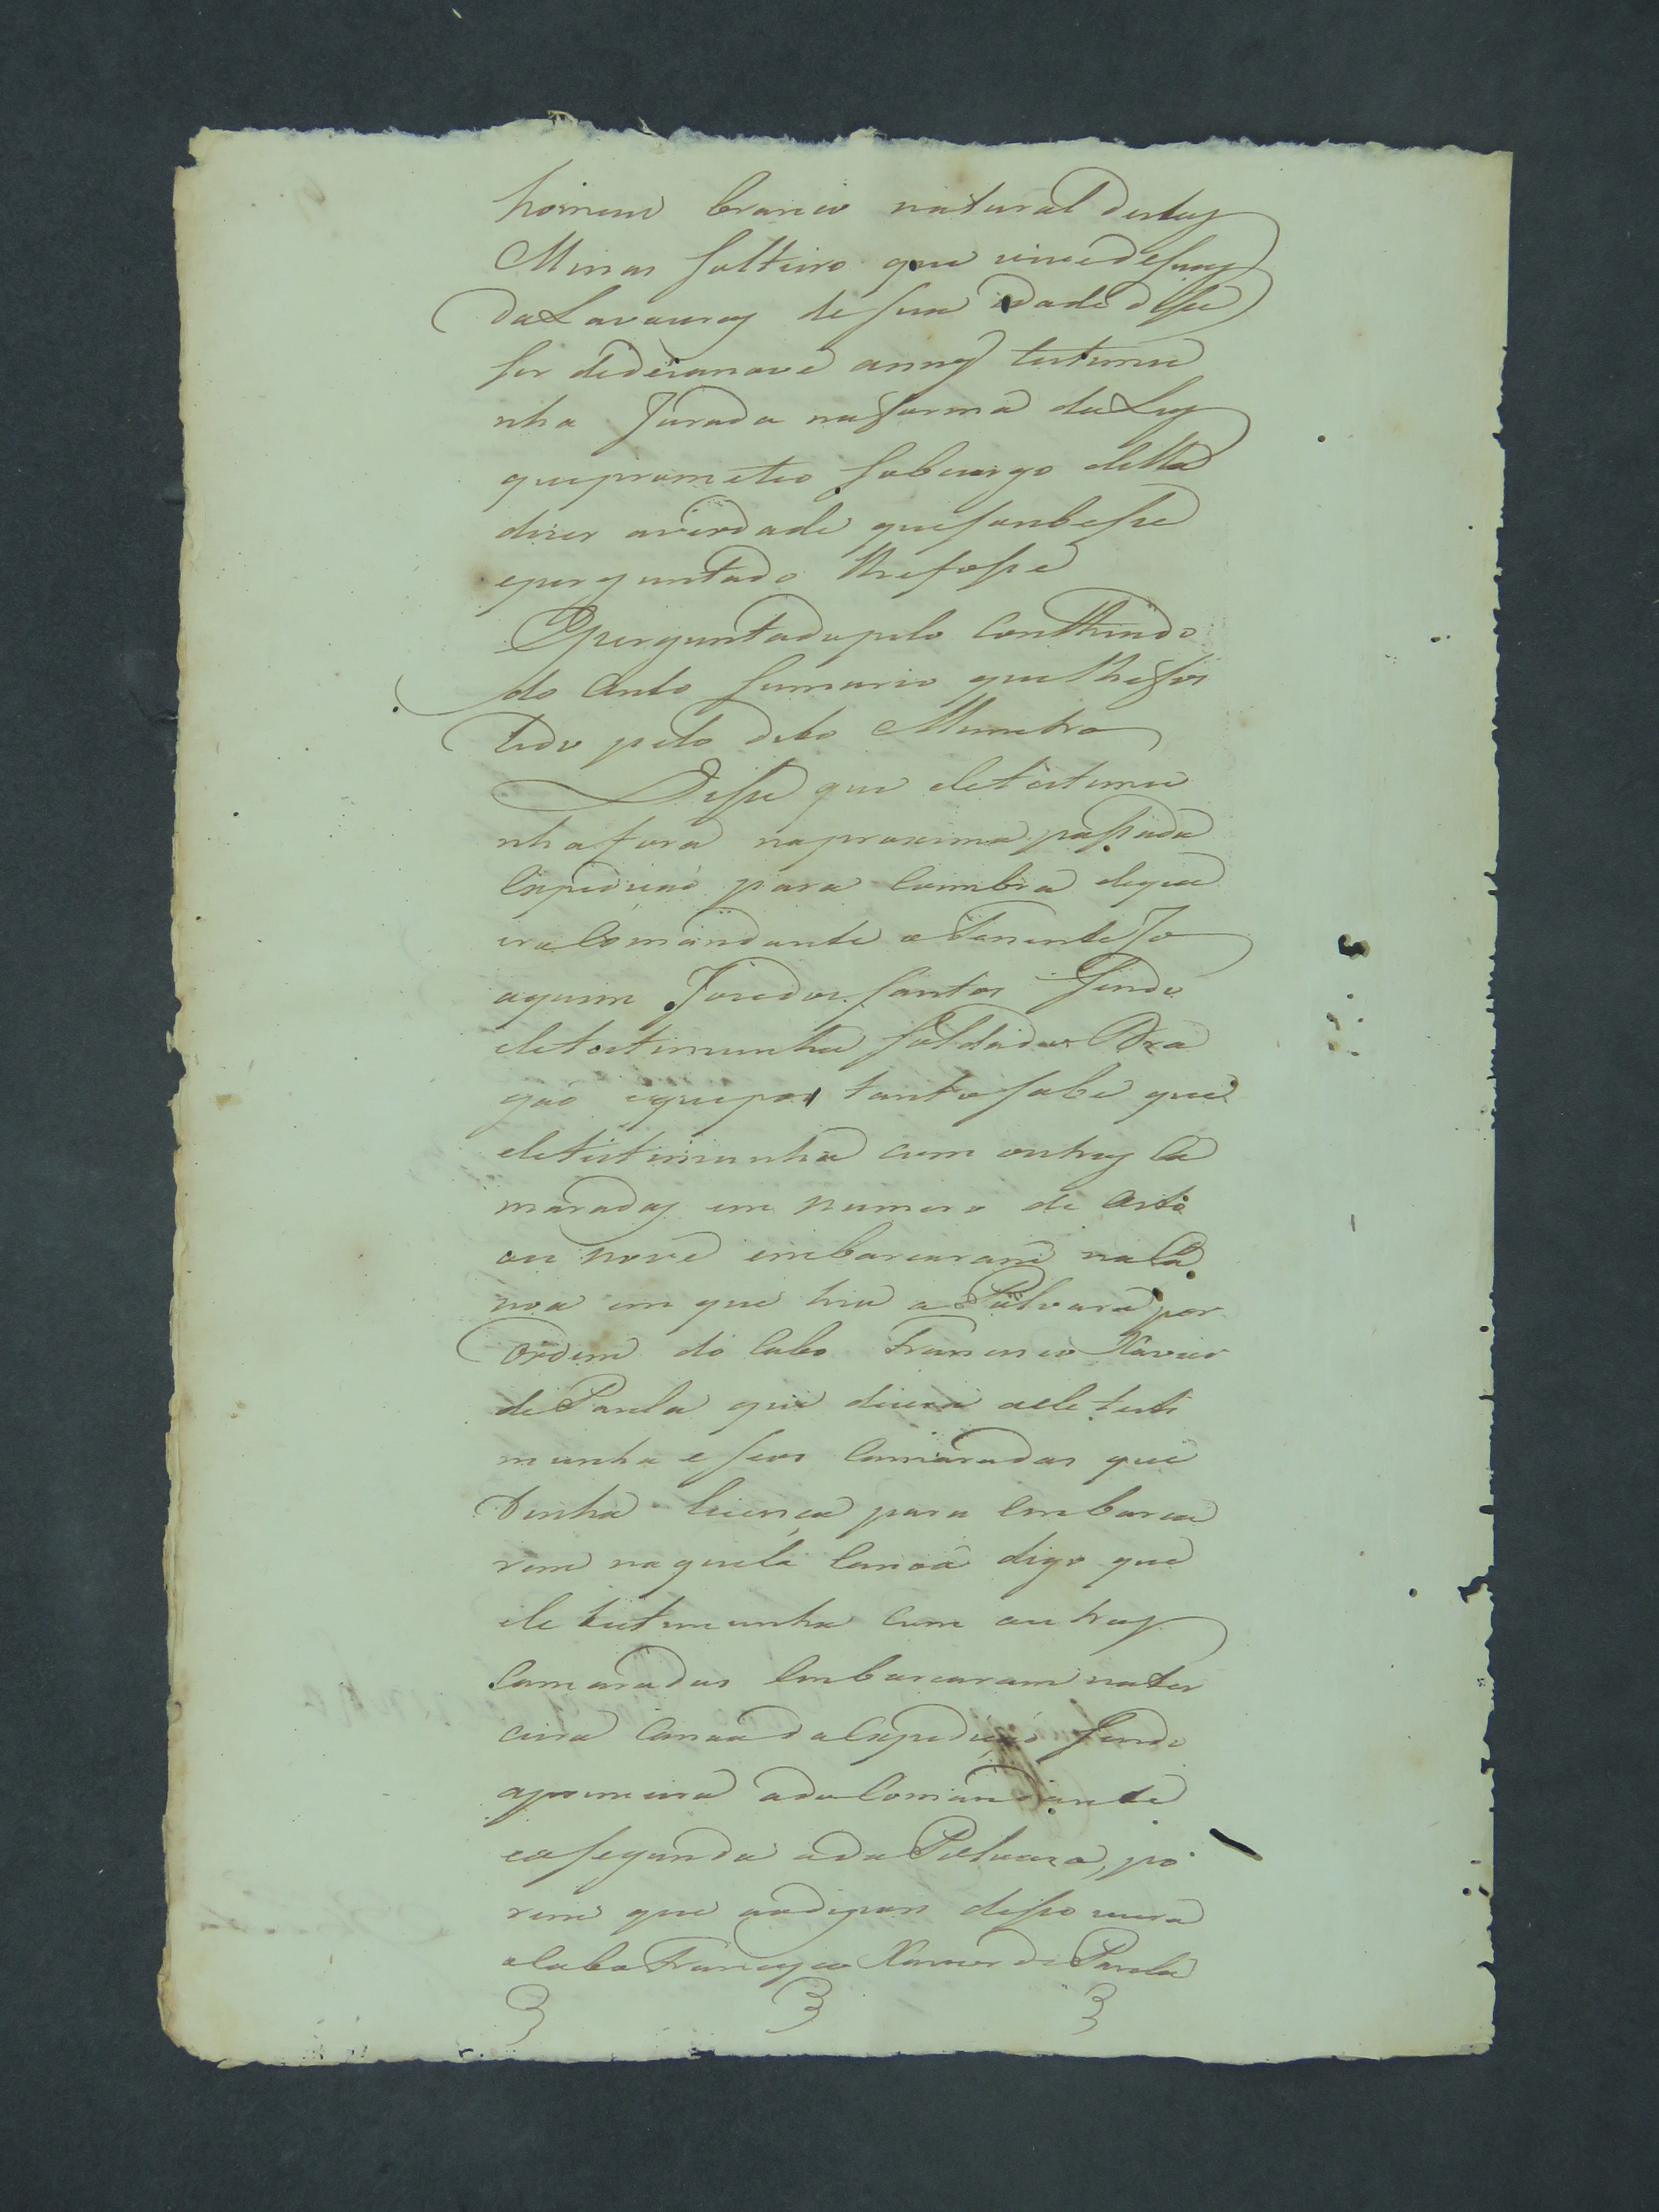 homem branco natural destas
Minas solteiro que vive de suas
da Lavouras de sua idade disse
ser de dezanove annos testemu
nha Jurada na forma da Ley
que prometeo sob cargo della
dizer averdade que soubesse
eperguntado lhe fosse
Eperguntado pelo conthiudo
do Auto sumario que lhe foi
Lido pelo dito Menistro
Disse que ele testemu
nha fora na proxima passada
Expedicaõ para Coimbra de que
era Comandante o Tenente Jo
aquim Jose dos Santos sendo
ele testimunha soldado Dra
gaõ e que por tanto sabe que
ele testimunha com outros Ca
maradas em numero de oito
ou nove embarcaraõ na Ca
noa em que hia a Polvora por
ordem do Cabo Francisco Xavier
de Paula que dicera aele teste
munha e seos Camaradas que
tinha licença para embarca
rem naquela Canoa digo que
ele testemunha com outros
Camaradas Embarcaram na ter
ceira Canoa da Expediçaõ sendo
aprimeira ado Comandante
e a segunda ada Polvora, po
rem que ao dipois disso viera
o Cabo Francisco Xavier de Paula